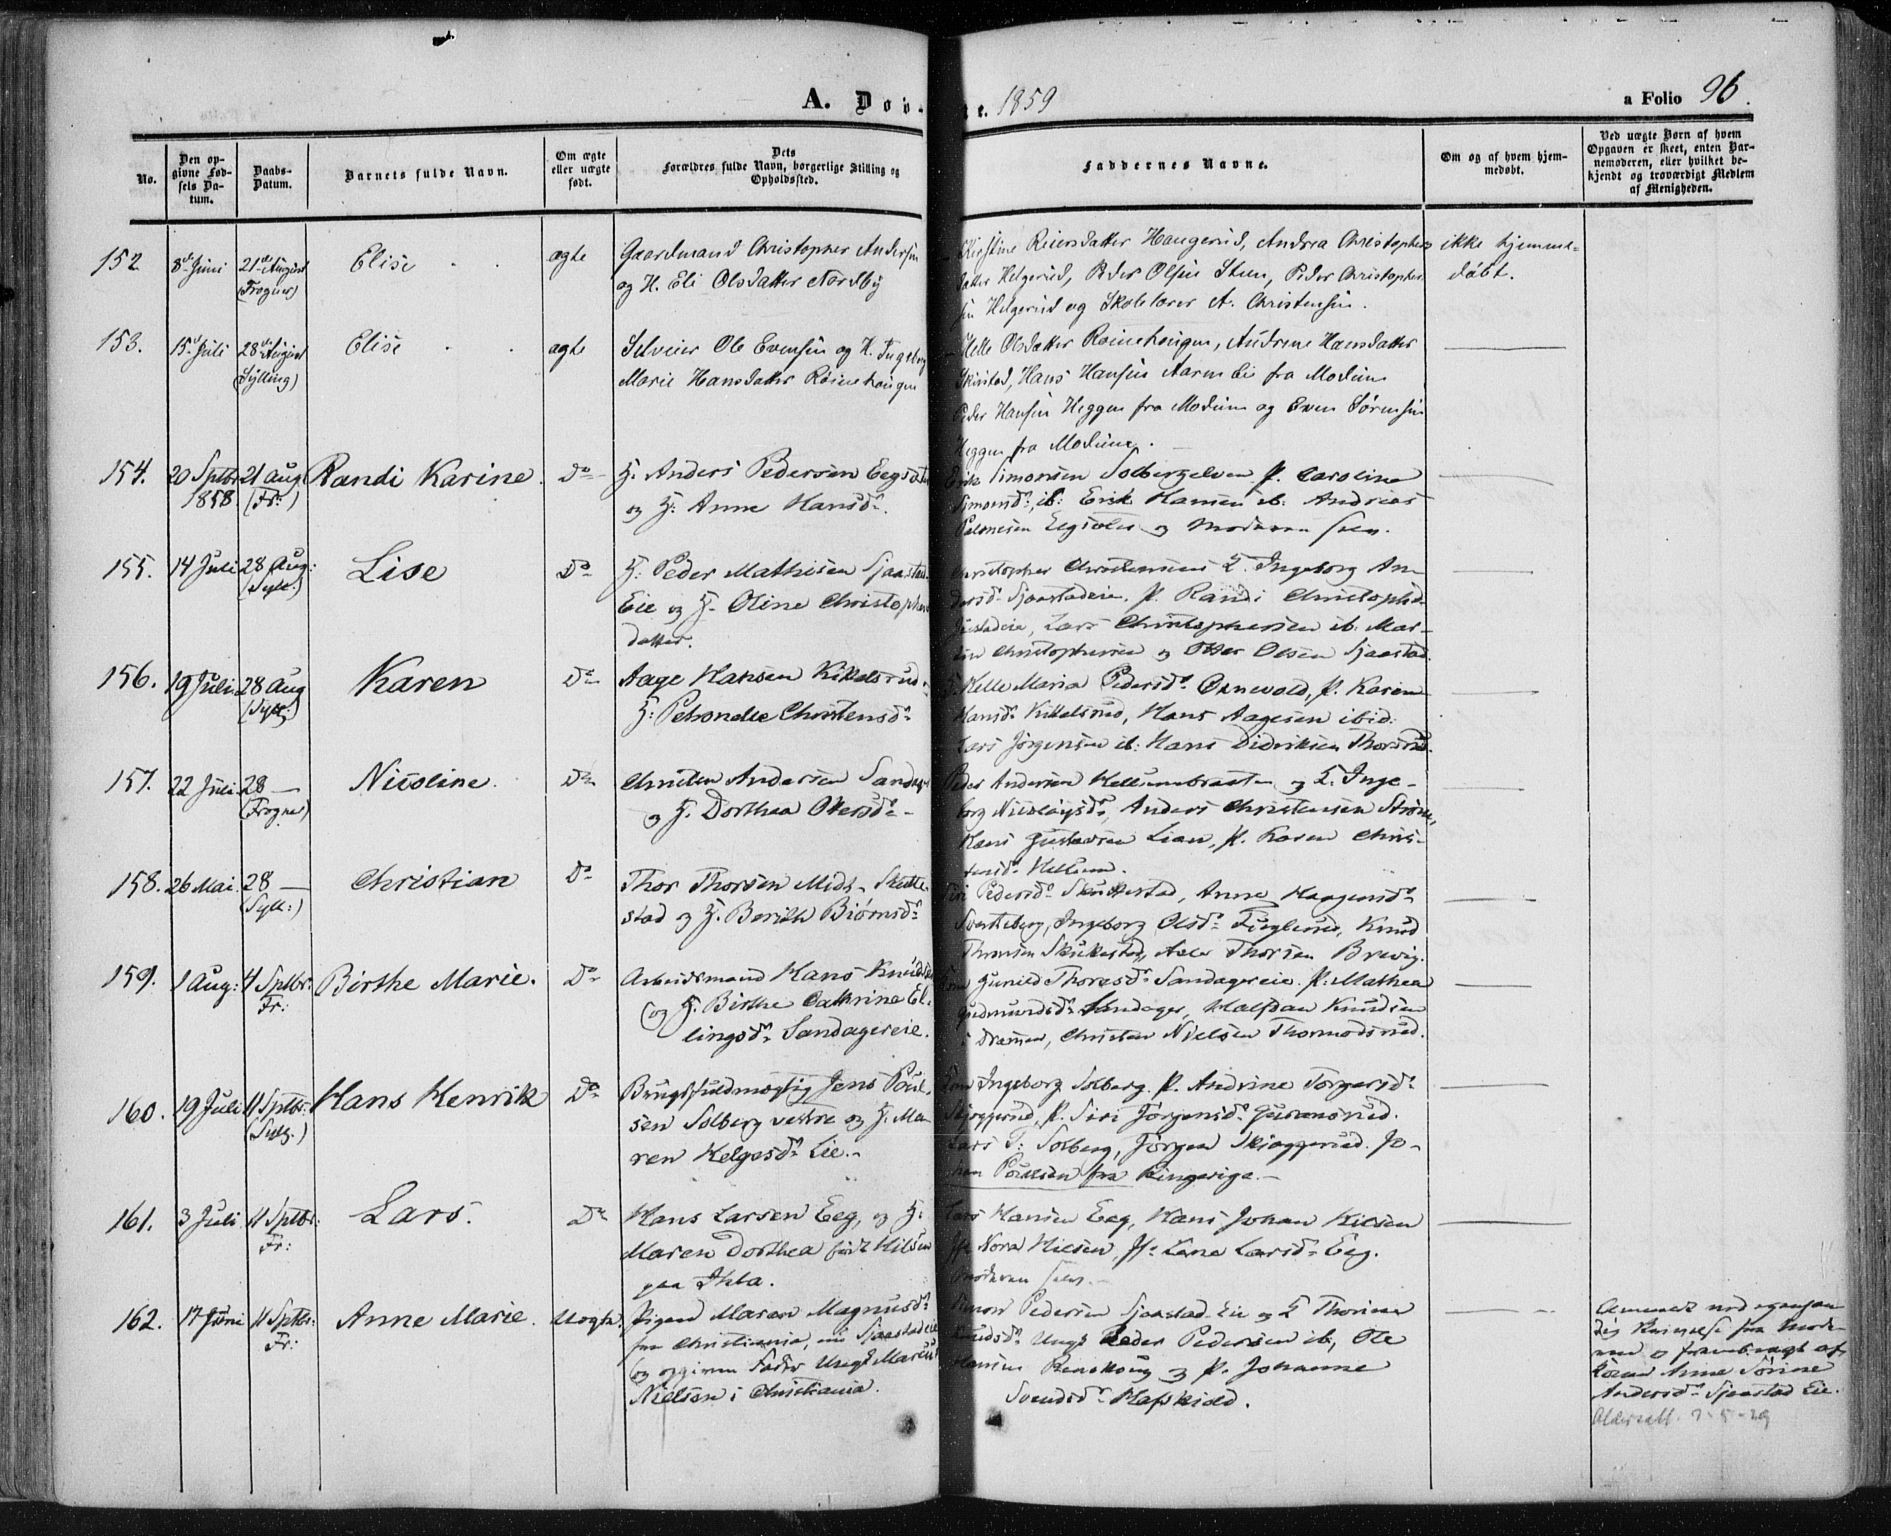 A. Døv- t. 1859
a Folio 96.
No.
Den op-
givne Fød-
sels Da-
tum.
Daabs-
Datum.
Barnets fulde Navn.
Om ægte
eller uægte
født.
Dets
Forældres fulde Navn, borgerlige Stilling og
Opholdssted.
Faddernes Navne.
Om og af hvem hjem-
medøbt.
Ved uægte Børn af hvem
Opgaven er skeet, enten Bar-
nemoderen, eller hvilket be-
kjendt og troværdigt Medlem
af Menigheden.
152 8d Juni 21de August (Frogner) Elise ægte
Gaardmand Christopher Andersen
og H. Eli Olsdatter Nordby
Kirstine Reiersdatter Haugerud, Andrea Christophers
datter Helgerud, Peder Olsen Steen, Peder Christopher
sen Helgerud og Skolelærer A. Christensen.
ikke hjemme-
døbt.
153. 15d Juli 28de August (Sylling) Elise ægte
Selveier Ole Evensen og H. Ingeborg
Marie Hansdatter Røinehaugen
Helle Olsdatter Roinehougen, Andrine Hansdatter
Skirstad, Hans Hansen Aarnes fra Modum
Peder Hansen Heggen fra Modum og Even Sørensen
Heggen fra Modum.
154. 20 Sptbr 1858. 21 Aug (Fr:) Randi Karine. Do
G. Anders Pedersen
og H: Anne Hansd.
Erik Simonsen Solbergelven P. Caroline
Simonsd. ib: Erik Hansen ib. Andreas
og Moderen selv.
155. 14 Juli 28 Aug: (Syll:) Lise Do
G: Peder Mathisen Sjaastad
Eie og H. Oline Christophers
datter.
Christopher Christensens K. Ingeborg An-
dersd. Sjaastadeie. P. Randi Christophd.
Lars Christophersen ib. Mar-
Christophersen og Peder Olsen Sjaastad.
156. 19 Juli 28 Aug (Syll:) Karen Do
Aage Hansen Kittelsrud
H: Petronelle Christensd.
K. Helle Maria Pedersd. P. Karen
Hansd. Kittelsrud, Hans Aagesen ibid:
Lars Jørgensen ib: Hans Didriksen Thorsrud.
157. 22 Juli 28 — (Frogner) Nicoline. Do
Christen Andersen Sandager
og H. Dorthea Olersd.
Peder Andersen Hellumbraaten og K. Inge-
borg Nicolaysd. Anders Christensen Strøm,
Hans Gustavsen Lian, P. Karen Chris-
tensd. Hellum.
158. 26 Mai. 28 — (Syll:) Christian Do
Thor Thorsen Midt-Skutte-
stad og H. Berith Biørnsd.
Siri Pedersd. Skuttestad, Anne Haagensd.
Svarteberg, Ingeborg Olsd. Fuglerud, Knud
Thorsen Skuttestad, Thorsen Brevig.
159. 1 Aug: 4 Sptbr: Fr: Birthe Marie. Do
Arbeidsmand Hans Knuds
(og H. Birthe Cathrine El-
lingsd. Sandagereie.
Gunild Thoresd. Sandagereie. P. Mathea
Gudmundsd. Sandager, Halfdan Knudsen
i Drammen, Christen Nielsen Thormodsrud.
160. 19 Juli 11 Sptbr: (Syll.) Hans Henrik Do
Brugsfuldmægtig Jens Poul-
sen Solberg vestre og H. Ma-
ren Helgesd. Lie.
Ingeborg Solberg. P. Andrine Torgersd.
Skjæggerud, P. Siri Jørgensd.
Lars T. Solberg, Jørgen Skiæggerud. Jo-
han Poulsen fra Ringerige.
161. 3 Juli 11 Sptbr: Fr: Lars. Do
Hans Larsen Eeg, og H:
Maren Dorthea født Nilsen
paa Ihla.
Lars Hansen Eeg, Hans Johan Nilsen
Jfr Nora Nielsen, Jfr. Lene Larsd. Eeg.
Moderen selv.
162. 17 Juni 11 Sptbr: Fr: Anne Marie. Uægte.
Pigen Maren Magnusd.
fra Christiania, nu Sjaastadeie
(og opgiven Fader Ungk. Marcus
Nielsen i Christiania.
Simon Pedersen Sjaastad Eie og K. Thorine
Knudsd. Ungk Peder Pedersen ib, Ole
Hansen og P. Johanne
Svendsd.
fra Mode-
ren og frembragt af
Konen Anne Sørine
Andersd. Sjaastad Eie.
Aldersatt. 7-5-29